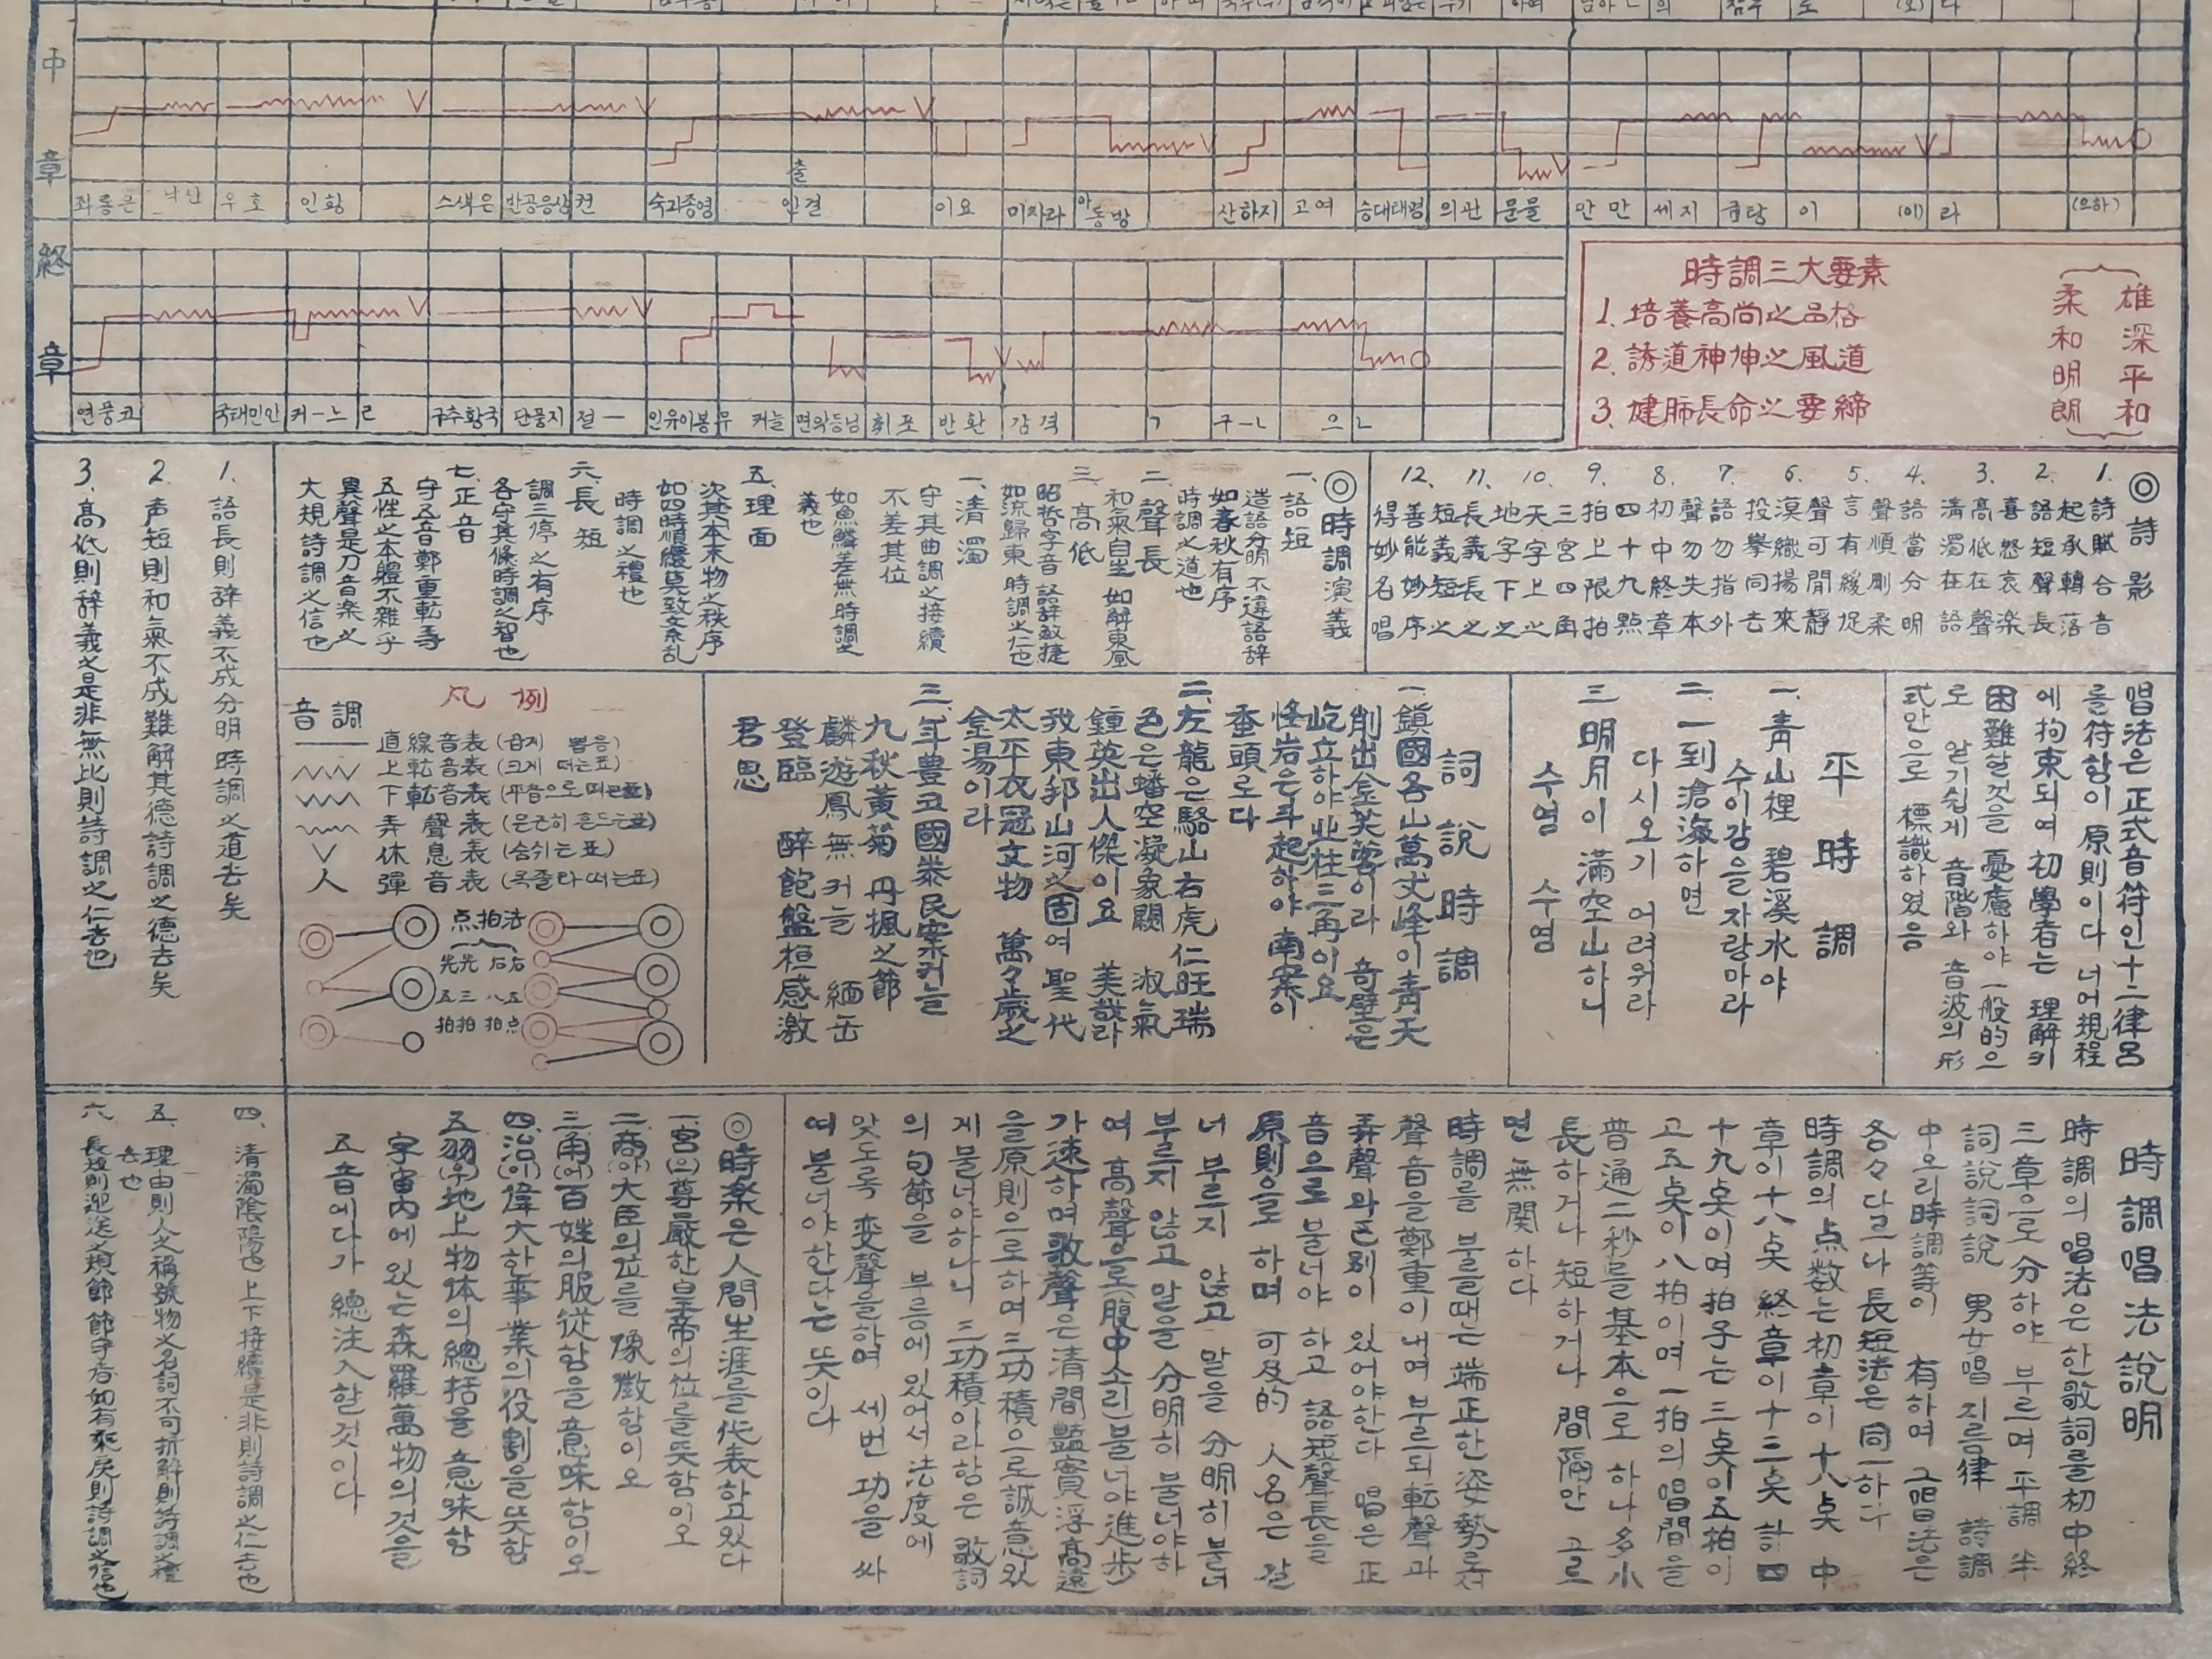 中
章
좌룡은 낙산 우호 인황 스색은 반공응상컨 숙긔종영 출 인걸 이요 미지라 아 동방 산하지 고여 승대태평 의관 문물 만만 세지 금탕 이 (이) 라 (으하)
終
章
연풍코 국태민안 커ー느 ㄹ 구추황국 단풍지 절ー 인유이봉무 커늘 면악등님 휘포 반환 감격 ㄱ 구ーㄴ 으ㄴ
時調三大要素
1. 培養高尚之品格
2. 誘道神神之風道
3. 健肺長命之要締
雄深平和
柔和明朗
◎詩影
1. 詩賦合音
2. 起承轉落
語短聲長
3. 喜怒哀楽
高低在聲
清濁在語
4. 語當分明
5. 聲順剛柔
言有緩促
6. 聲可閒靜
漠織揚來
投擧同去
7. 語勿指外
聲勿失本
8. 初中終章
四十九點
9. 拍上限拍
三宮四角
10. 天字上之
地字下之
11. 長義長之
短義短之
12. 善能妙序
得妙名唱
◎時調演義
一. 語短
造語分明 不違語辞
如春秋有序
時調之道也
二 聲長
和氣自生 如解東風
三 高低
昭哲字音 語辞敏捷
如流歸東 時調之仁也
一. 清濁
守其曲調之接續
不差其位
如魚鱗差無時調之
義也
五. 理面
次其本末物之秩序
如四時順繯莫致文系乱
時調之禮也
六. 長短
調三停之有序
各守其條時調之智也
七. 正音
守五音鄭重転等
五性之本軆不雜乎
異聲是乃音楽之
大規詩調之信也
1. 語長則辞義不成分明時調之道去矣
2. 声短則和氣不成難解其德詩調之德去矣
3. 高低則辞義之是非無比則詩調之仁去也
唱法은 正式音符인 十二律呂
를 符함이 原則이다 너어規程
에 拘束되여 初學者는 理解키
困難할것을 憂慮하야 一般的으
로 알기쉽게 音階와 音波의 形
式만으로 標識하였음
平時調
一. 靑山裡 碧溪水야
수이감을 자랑마라
二. 一到滄海하면
다시오기 어려워라
三 明月이 滿空山하니
수영 수영
詞說時調
一. 鎭國各山萬丈峰이 靑天
削出金芙蓉이라 奇壁은
屹立하야 北柱三角이요
怪岩은 斗起하야 南案이
蚕頭로다
二. 左龍은 駱山右虎仁旺瑞
色은 蟠空凝象闕 淑氣
鍾英出人傑이요 美哉라
我東邦山河之固여 聖代
太平衣冠文物 萬々歲之
金湯이라
三. 年豊코國泰民案커늘
九秋黃菊 丹楓之節
麟遊鳳無커늘 緬岳
登臨 醉飽盤桓感激
君恩
凡例
音調
直線音表 (곱게 뽑음)
上転音表 (크게 떠는표)
下転音表 (平音으로 떠는표)
弄聲表 (은근히 흔드는표)
休息表 (숨쉬는표)
彈音表 (목졸라떠는표)
点拍法
五拍 三拍 八拍 五点
時調唱法說明
時調의 唱法은 한 歌詞를 初中終
三章으로 分하야 부르며 平調 半
詞說詞說 男女唱 지름律 詩調
中오리時調等이 有하며 그唱法은
各々다르나 長短法은 同一하다
時調의 点数는 初章이 十八点 中
章이 十八点 終章이 十三点 計四
十九点이며 拍子는 三点이 五拍이
고 五点이 八拍이며 一拍의 唱間을
普通二秒를 基本으로 하나 多小
長하거나 短하거나 間隔만 고르
면 無関하다
時調를 부를때는 端正한 姿勢로서
聲音을 鄭重이내며 부르되 転聲과
弄聲와 區別이 있어야한다 唱은 正
音으로 불너야 하고 語短聲長을
原則으로 하며 可及的 人名은 잘
너 부르지 않고 말을 分明히 불너
부르지 않고 말을 分明히 불너야하
여 高聲으로(腹中소리)불너야 進步
가速하며 歌聲은 清間豔實浮高遠
을 原則으로하며 三功積으로 誠意있
게 불너야하나니 三功積이라함은 歌詞
의 句節을 부릉에 있어서 法度에
맞도록 変聲을하며 세번 功을 싸
여 불너야한다는 뜻이다
◎時楽은 人間生涯를 代表하고있다
一. 宮(으)尊嚴한 皇帝의 位를 뜻함이오
二. 商(아)大臣의 位를 像徵함이오
三. 角(어)百姓의 服從함을 意味함이오
四. 治(이)偉大한 事業의 役割을 뜻함
五. 羽(우)地上物体의 總括을 意味함
宇宙內에 있는 森羅萬物의것을
五音에다가 總注入할것이다
四. 清濁陰陽也 上下接續是非則詩調之仁去也
五. 理由則人之稱號物之名詞不可折解則詩調之禮
去也
六. 長短則迎送之規節 節爭者如有乘戾則詩調之信也